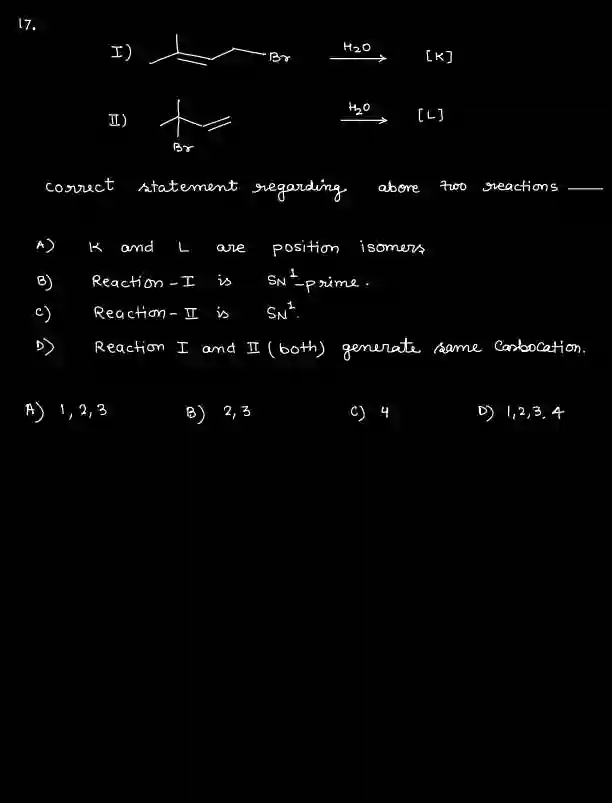 17.
I) Br H2O [K]
II) Br H2O [L]
correct statement regarding above two reactions ——
A) K and L are position isomers
B) Reaction - I is SN1-prime.
C) Reaction - II is SN1.
D) Reaction I and II (both) generate same Carbocation.
A) 1, 2, 3 B) 2, 3 C) 4 D) 1, 2, 3, 4